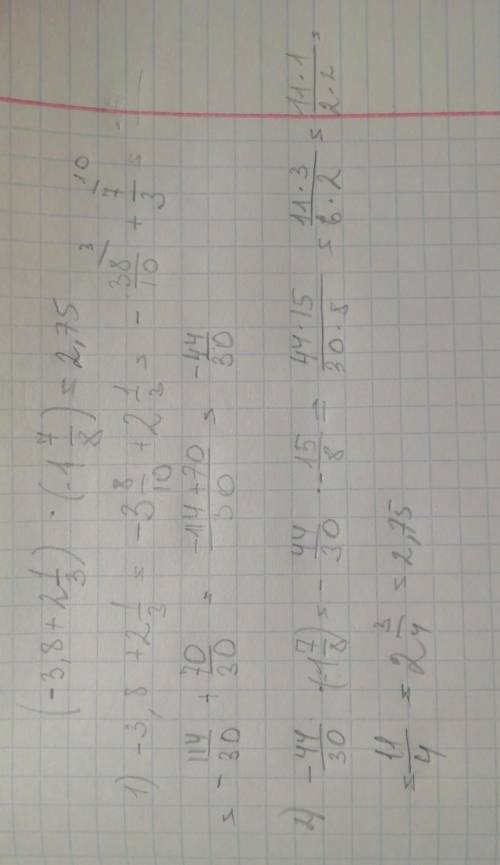 (-3,8 + 2 1/3) · (-1 7/8) = 2,75
1) -3,8 + 2 1/3 = -3 8/10 + 2 1/3 = - 38/10 \3 + 7/3 \10 =
= - 114/30 + 70/30 = (-114+70)/30 = - 44/30
2) - 44/30 · (-1 7/8) = - 44/30 · - 15/8 = (44·15)/(30·8) = (11·3)/(6·2) = (11·1)/(2·2) =
= 11/4 = 2 3/4 = 2,75